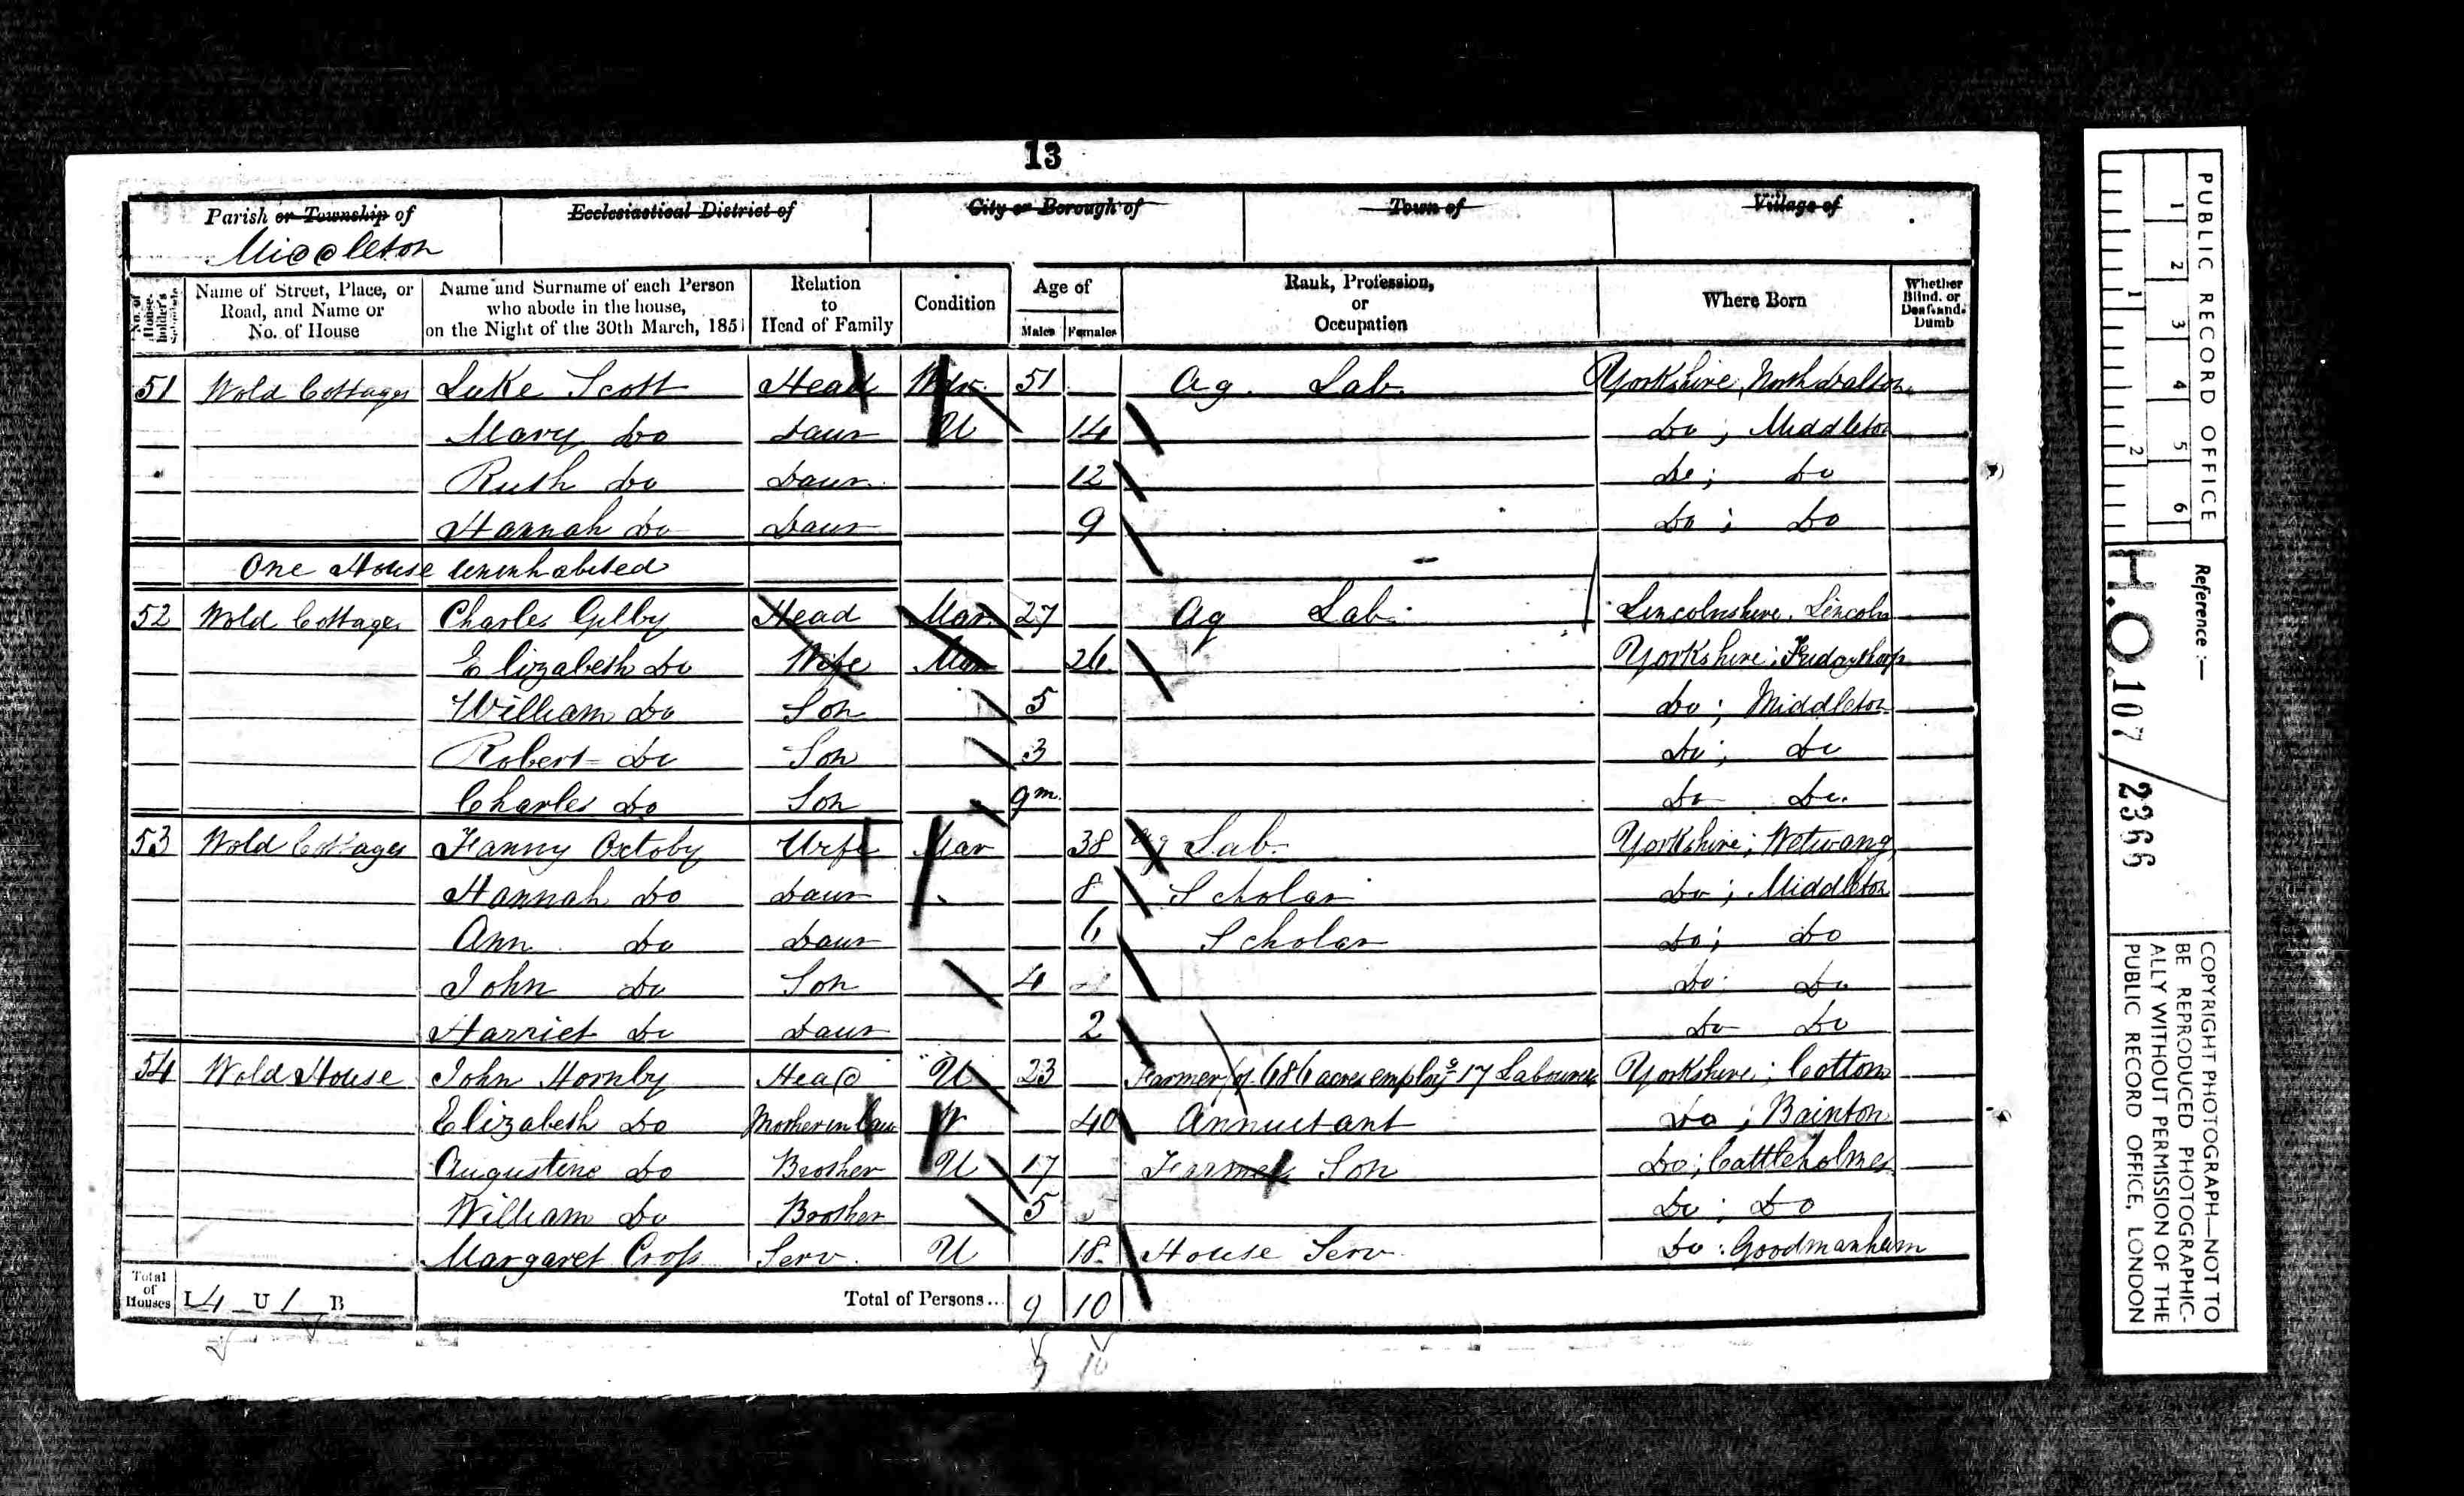 13
Parish or Township of Ecclesiastical District of City or Borough of Town of Village of
Middleton
No. of House-holder's Schedule Name of Street, Place, or Road, and Name or No. of House Name and Surname of each Person who abode in the house, on the Night of the 30th March, 1851 Relation to Head of Family Condition Age of Males Females Rank, Profession, or Occupation Where Born Whether Blind, or Deaf-and-Dumb
51 Wold Cottages Luke Scott Head Wdr 51 Ag. Lab. Yorkshire, North Dalton
Mary Do Daur U 14 Do ; Middleton
Ruth Do Daur 12 Do ; Do
Hannah Do Daur 9 Do ; Do
One House uninhabited
52 Wold Cottages Charles Gilby Head Mar. 27 Ag Lab. Lincolnshire. Lincoln
Elizabeth Do Wife Mar 26 Yorkshire ; Fridaythorp
William Do Son 5 Do ; Middleton
Robert Do Son 3 Do ; Do
Charles Do Son 9m Do Do.
53 Wold Cottages Fanny Oxtoby Wife Mar 38 Ag Lab. Yorkshire ; Wetwang
Hannah Do Daur 8 Scholar Do ; Middleton
Ann Do Daur 6 Scholar Do ; Do
John Do Son 4 Do Do
Harriet Do Daur 2 Do Do
54 Wold House John Hornby Head U 23 Farmer of 686 acres employg 17 Labourers Yorkshire ; Cottom
Elizabeth Do Mother in law W 40 Annuitant Do ; Bainton
Augustine Do Brother U 17 Farmer Son Do ; Cattleholmes
William Do Brother 5 Do ; Do
Margaret Crofs Serv. U 18 House Serv Do : Goodmanham
Total of Houses I 4 U 1 B Total of Persons... 9 10
9 10
PUBLIC RECORD OFFICE
1 2 3 4 5 6
1 2
Reference :—
H.O. 107/2366
COPYRIGHT PHOTOGRAPH—NOT TO
BE REPRODUCED PHOTOGRAPHIC-
ALLY WITHOUT PERMISSION OF THE
PUBLIC RECORD OFFICE, LONDON